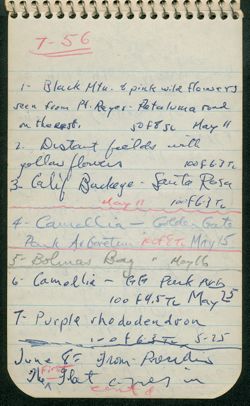 7-56
1- Black Mtn. & pink wild flowers
seen from Pt. Reyes - Petaluma road
on the rest. 50 F 8 Sc May 11
2. Distant fields with
yellow flowers 100 F 6.3 Tc
3- Calif Buckeye - Santa Rosa
May 11 100 F 6.3 Tc
4- Camellia - Golden Gate
Park Arboretum 100 F 8 Tc May 15
5- Bolinas Bay " May 16
6- Camellia - GG Park Arb
100 F 4.5 Tc May 25
7- Purple rhododendron
100 F 6.3 Tc 5-25
June 8th From
The first Flat in
cont'd